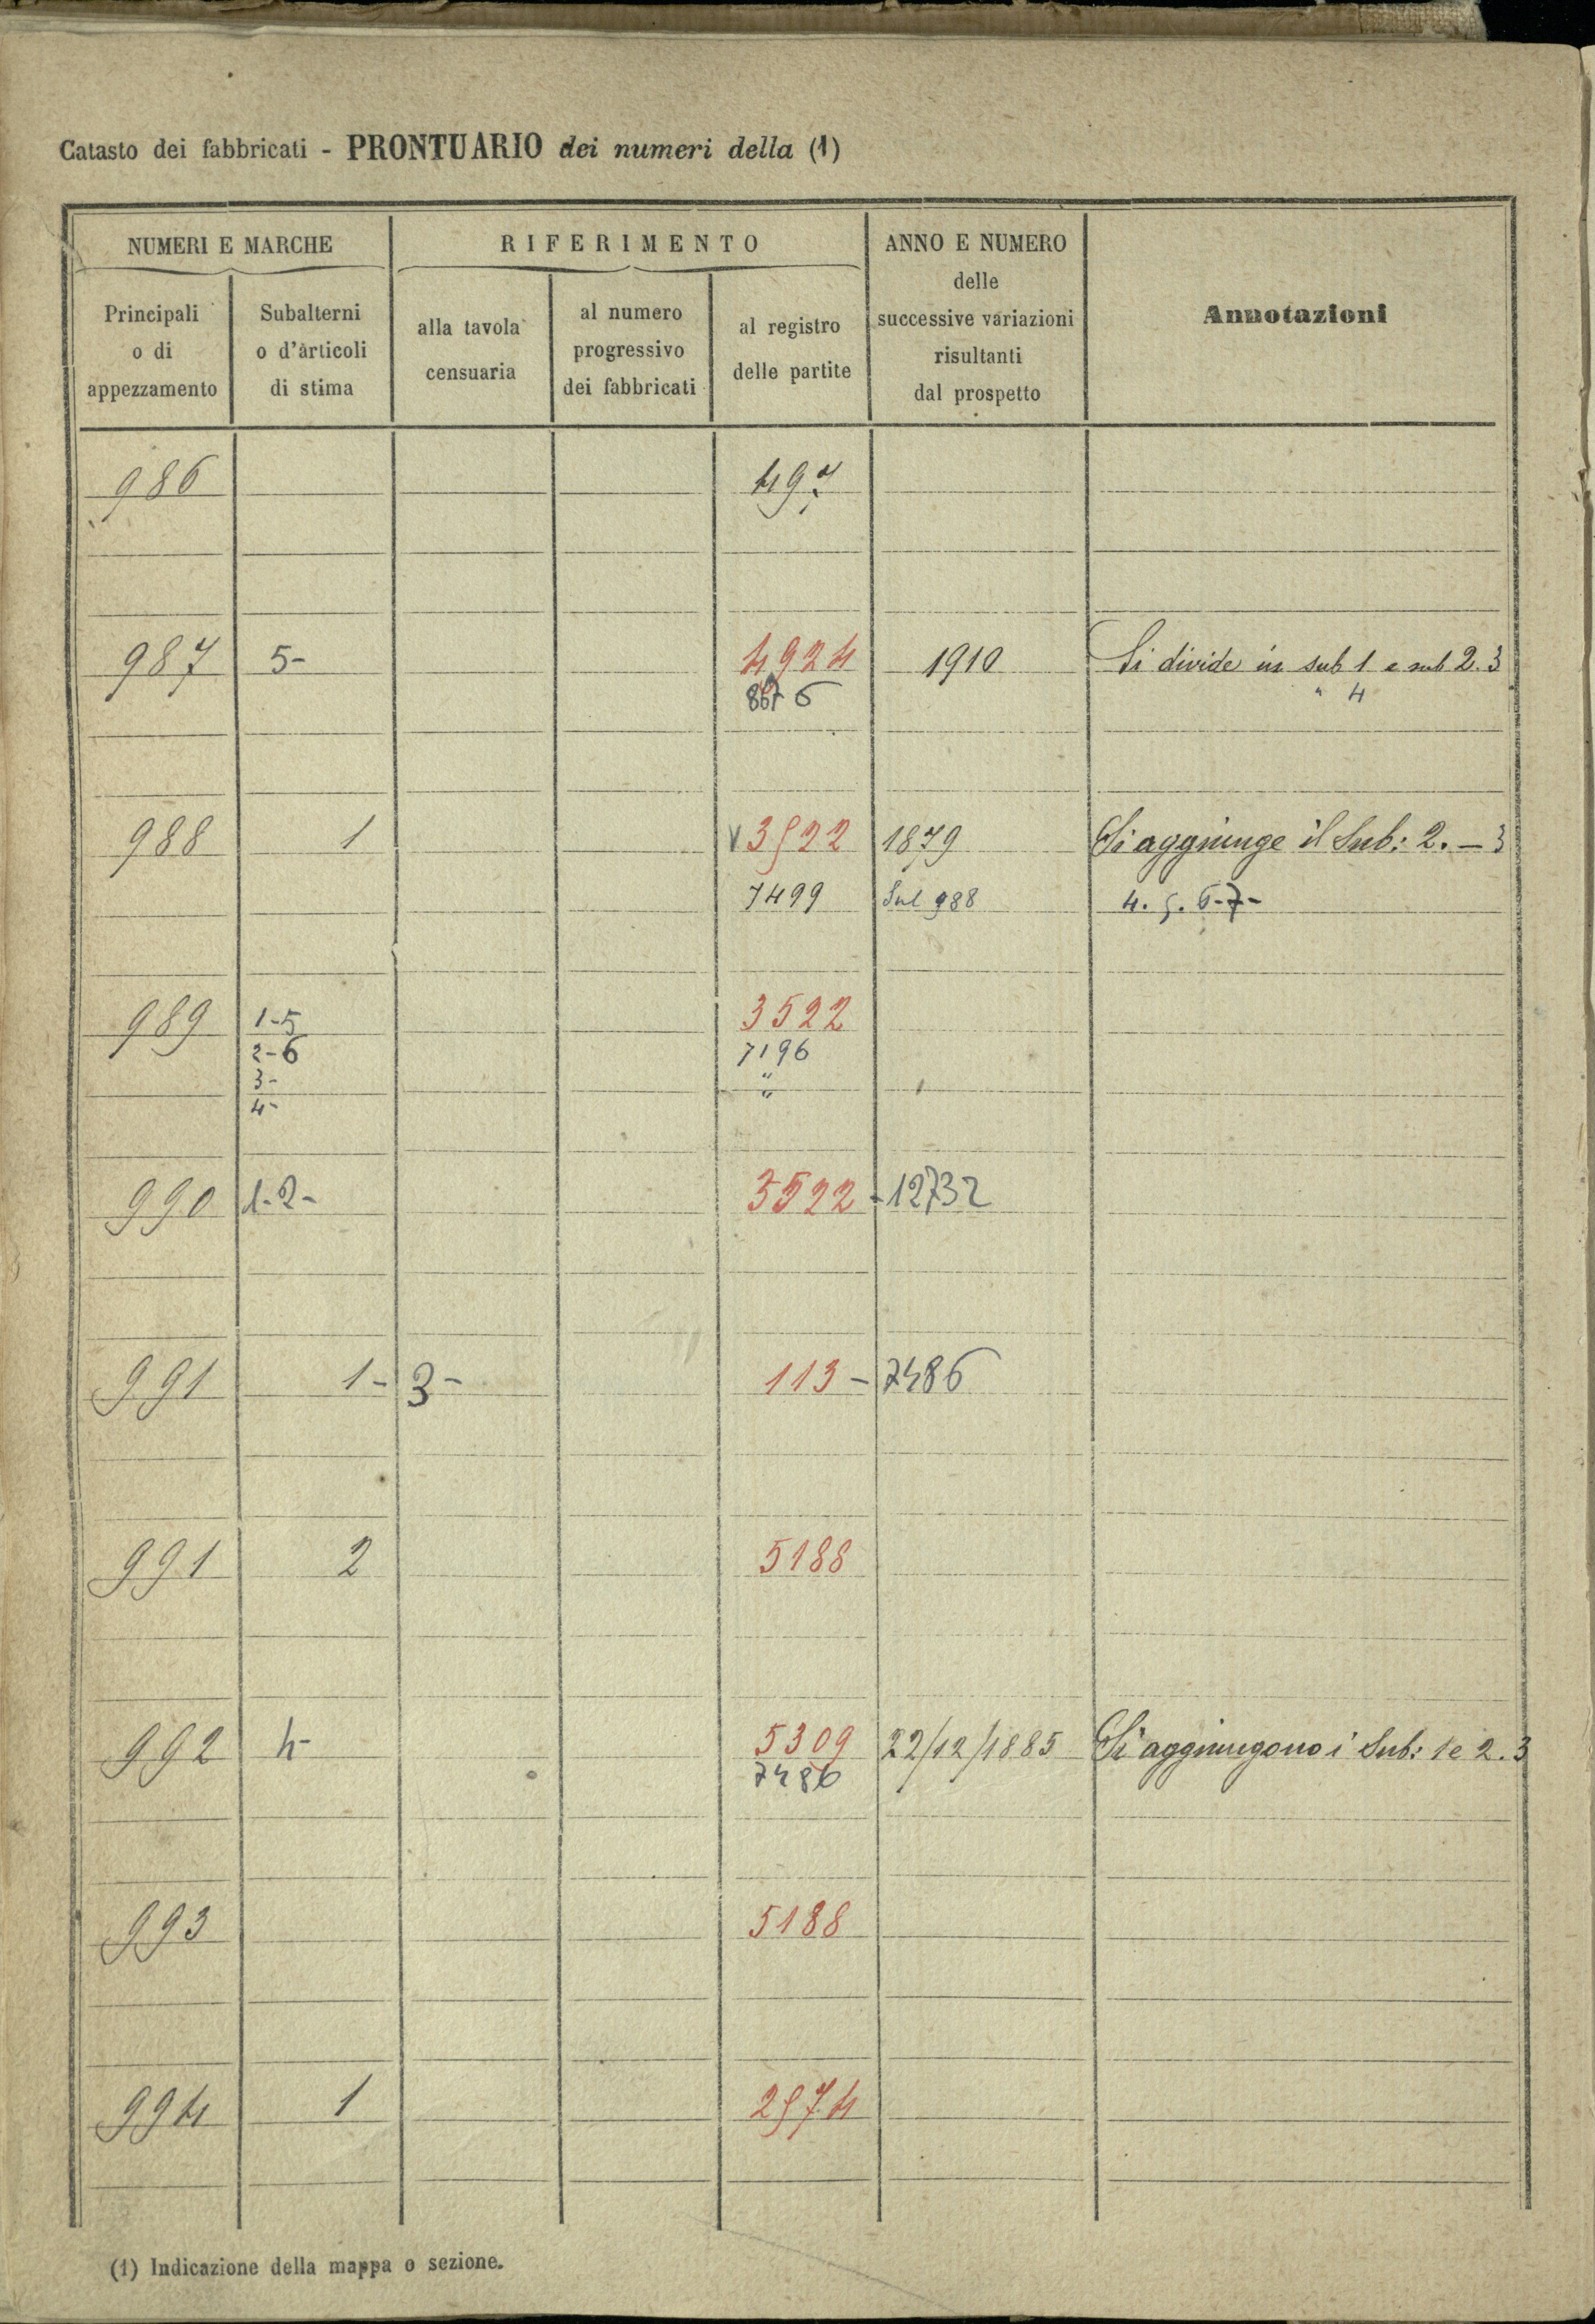 Catasto dei fabbricati - PRONTUARIO dei numeri della (1)
NUMERI E MARCHE
Principali o di appezzamento
Subalterni o d'articoli di stima
RIFERIMENTO
alla tavola censuaria
al numero progressivo dei fabbricati
al registro delle partite
ANNO E NUMERO delle successive variazioni risultanti dal prospetto
Annotazioni
986 497
987 5- 4924 1910 Si divide in sub 1 e sub 2. 3
" 4
988 1 3522 1879 Si aggiunge il Sub: 2. - 3
7499 Sul 988 4. 5. 6-7-
989 1-5 3522
2-6 7196
3- "
4- "
990 1-2- 3522 - 12732
991 1- 3- 113 - 7486
991 2 5188
992 4- 5309 22/12/1885 Si aggiungono i Sub: 1 e 2. 3
7486
993 5188
994 1 2574
(1) Indicazione della mappa o sezione.